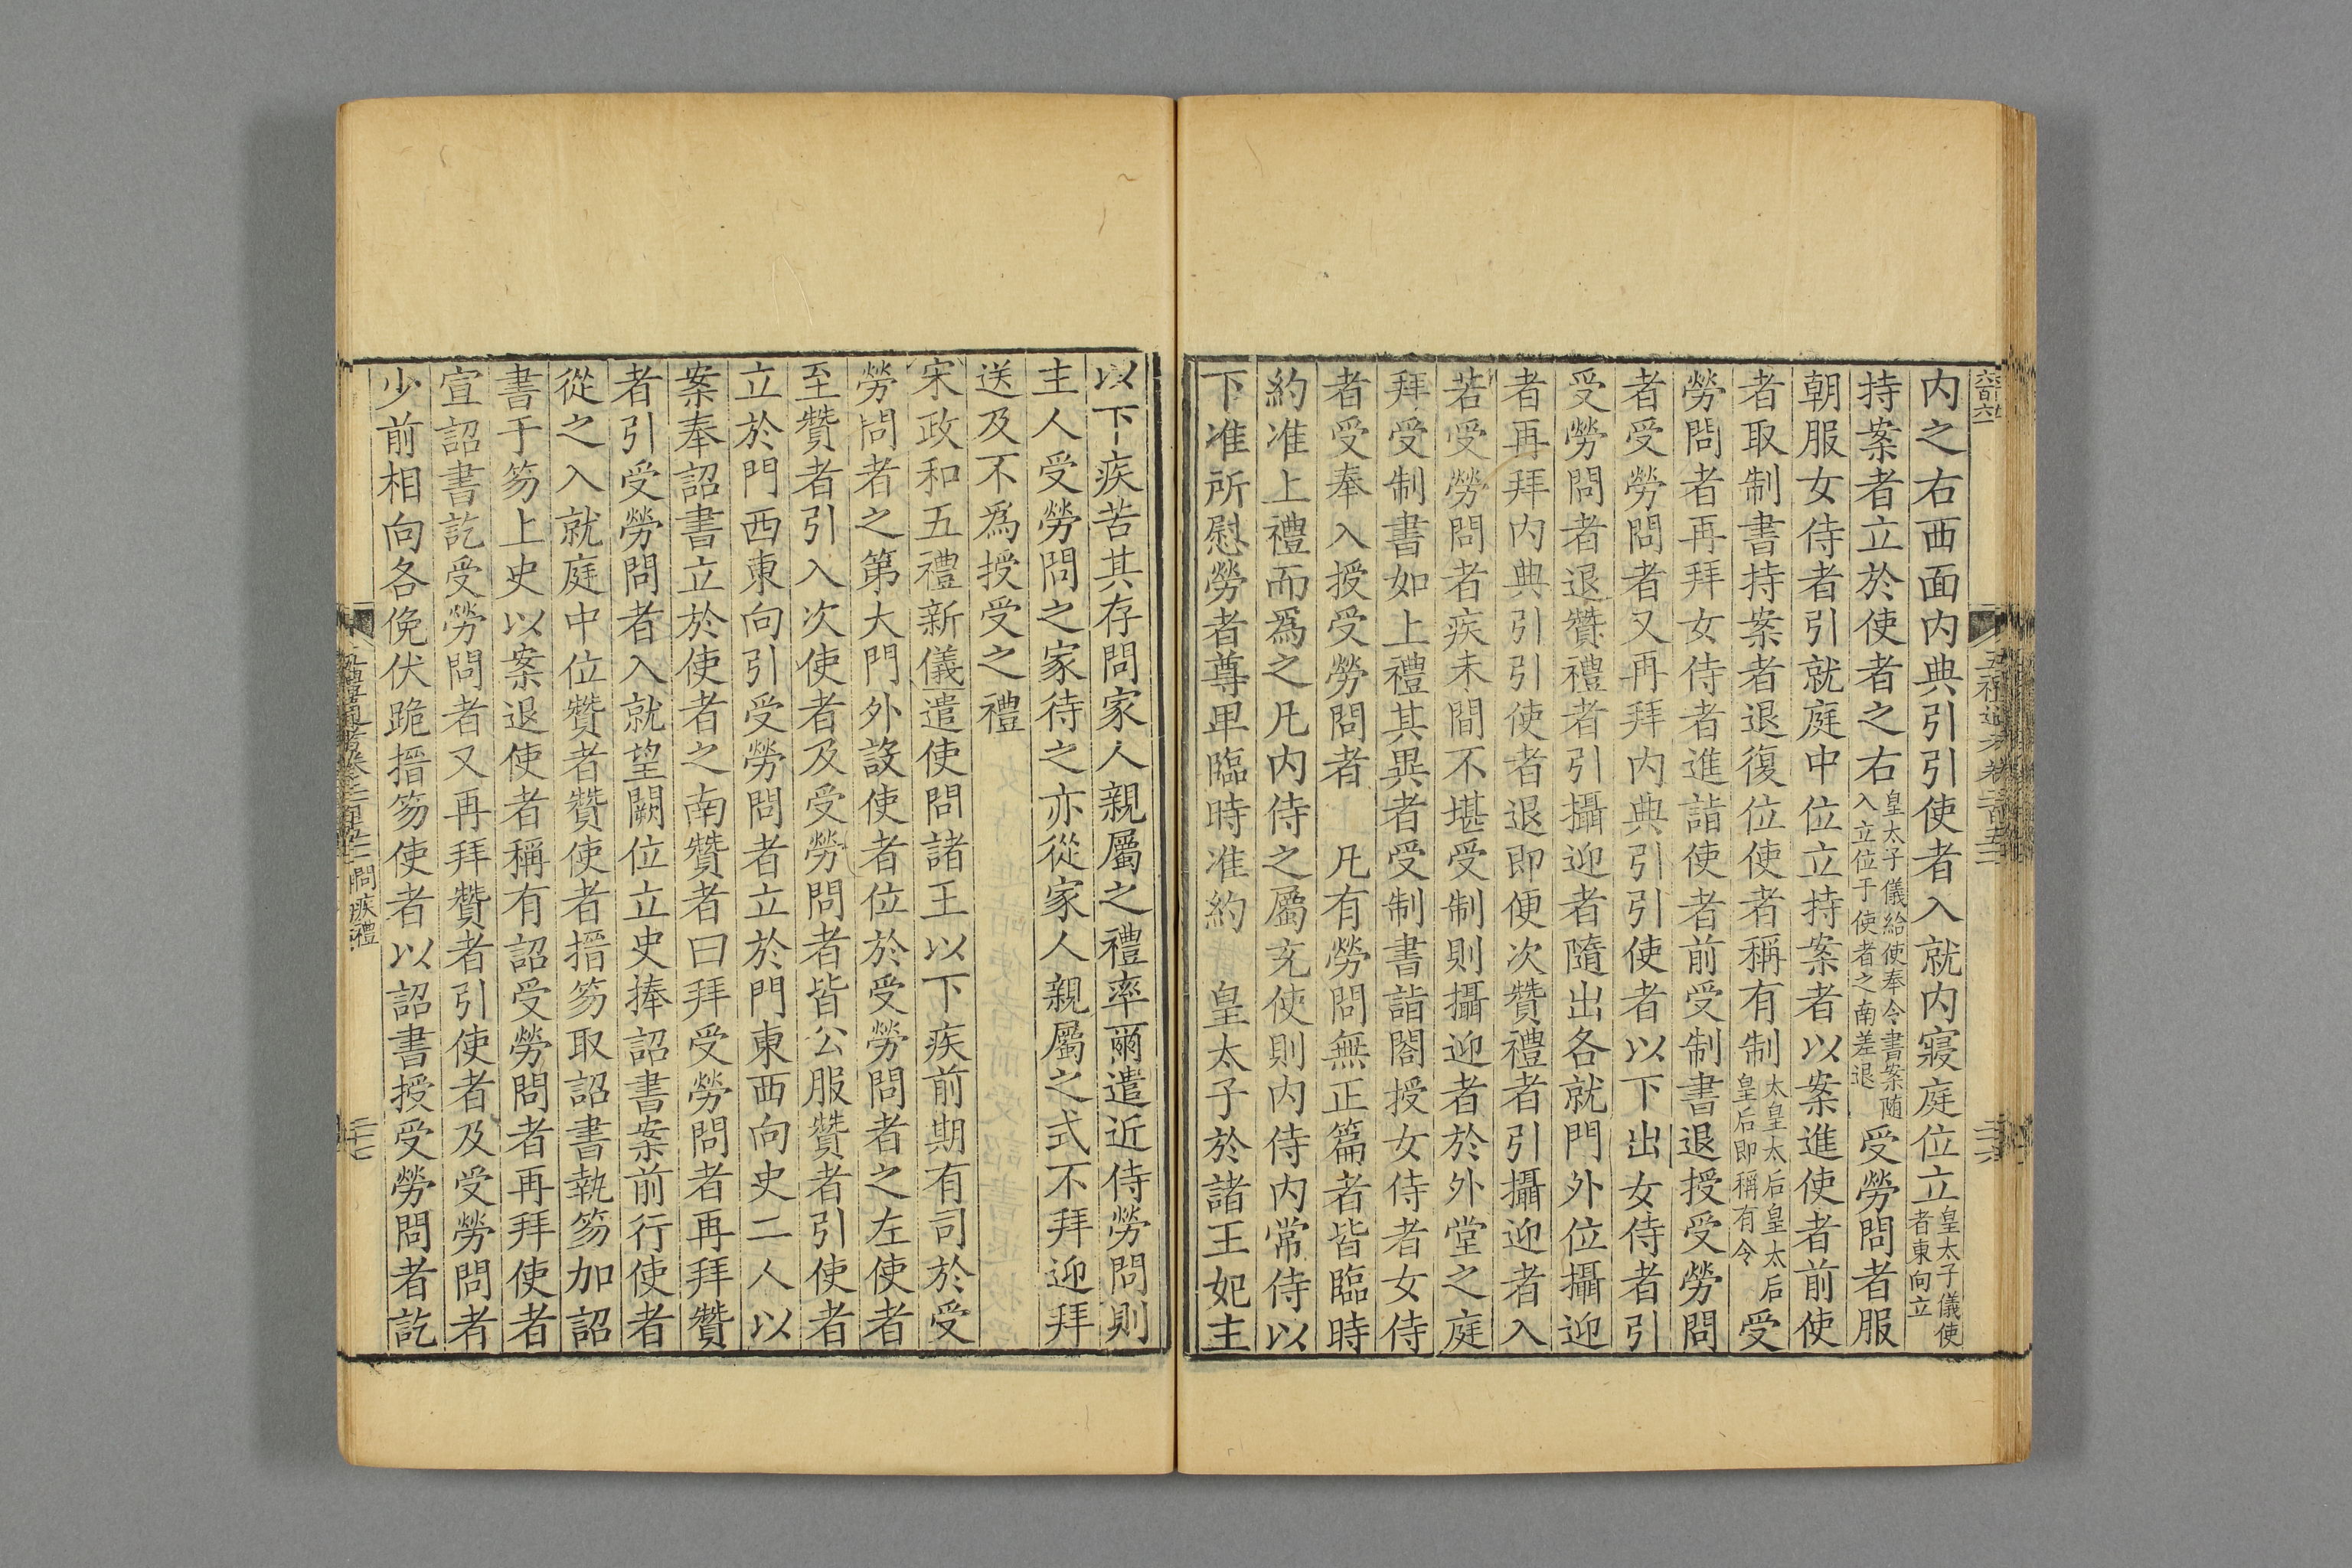 内之右西面内典引引使者入就内寢庭位立皇太子儀使者東向立
持案者立於使者之右皇太子儀給使奉令書案随入立位于使者之南差退受勞問者服
朝服女侍者引就庭中位立持案者以案進使者前使
者取制書持案者退復位使者稱有制太皇太后皇太后皇后即稱有令受
勞問者再拜女侍者進詣使者前受制書退授受勞問
者受勞問者又再拜内典引引使者以下出女侍者引
受勞問者退贊禮者引攝迎者隨出各就門外位攝迎
者再拜内典引引使者退即便次贊禮者引攝迎者入
若受勞問者疾未間不堪受制則攝迎者於外堂之庭
拜受制書如上禮其異者受制書詣閤授女侍者女侍
者受奉入授受勞問者　凡有勞問無正篇者皆臨時
約准上禮而爲之凡内侍之屬充使則内侍内常侍以
下准所慰勞者尊卑臨時准約　皇太子於諸王妃主
以下疾苦其存問家人親屬之禮率爾遣近侍勞問則
主人受勞問之家待之亦從家人親屬之式不拜迎拜
送及不爲授受之禮
宋政和五禮新儀遣使問諸王以下疾前期有司於受
勞問者之第大門外設使者位於受勞問者之左使者
至贊者引入次使者及受勞問者皆公服贊者引使者
立於門西東向引受勞問者立於門東西向史二人以
案奉詔書立於使者之南贊者曰拜受勞問者再拜贊
者引受勞問者入就望闕位立史捧詔書案前行使者
從之入就庭中位贊者贊使者搢笏取詔書執笏加詔
書于笏上史以案退使者稱有詔受勞問者再拜使者
宣詔書訖受勞問者又再拜贊者引使者及受勞問者
少前相向各俛伏跪搢笏使者以詔書授受勞問者訖
問疾禮
二十七